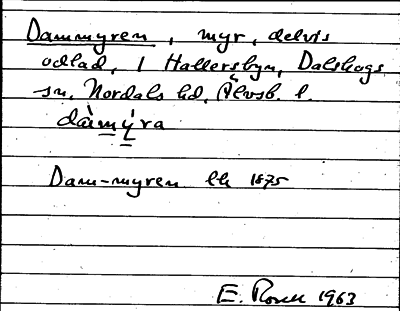 Dammyren, myr, delvis
odlad, i Hallersbyn, Dalskogs
sn, Nordals hd, Älvsb. l.
dàmýra
Dam-myren lk 1875
E. Rosell 1963